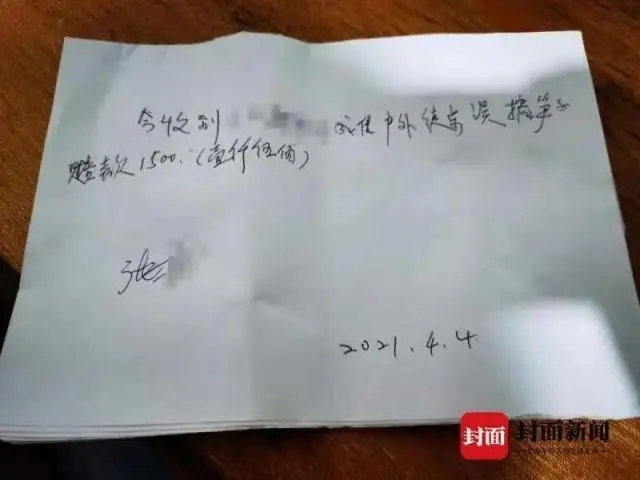 今收到 成佳户外徒步误摘笋子
赔款1500.(壹仟伍佰)
张
2021.4.4
封面 封面新闻